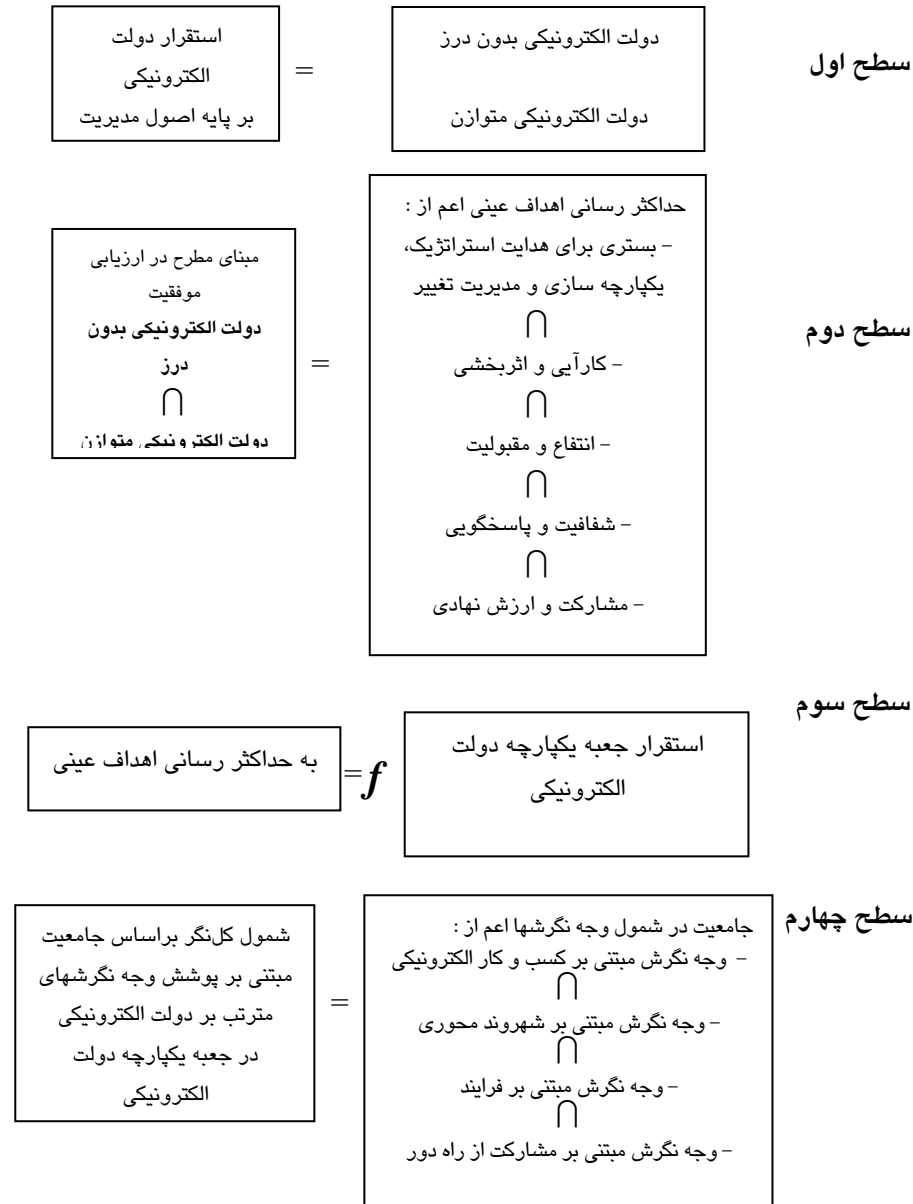 سطح اول
دولت الکترونیکی بدون درز
دولت الکترونیکی متوازن
=
استقرار دولت
الکترونیکی
بر پایه اصول مدیریت
سطح دوم
حداکثر رسانی اهداف عینی اعم از :
– بستری برای هدایت استراتژیک،
یکپارچه سازی و مدیریت تغییر
∩
– کارآیی و اثربخشی
∩
– انتفاع و مقبولیت
∩
– شفافیت و پاسخگویی
∩
– مشارکت و ارزش نهادی
=
مبنای مطرح در ارزیابی
موفقیت
دولت الکترونیکی بدون
درز
∩
دولت الکترونیکی متوازن
سطح سوم
استقرار جعبه یکپارچه دولت
الکترونیکی
=f
به حداکثر رسانی اهداف عینی
سطح چهارم
جامعیت در شمول وجه نگرشها اعم از :
– وجه نگرش مبتنی بر کسب و کار الکترونیکی
∩
– وجه نگرش مبتنی بر شهروند محوری
∩
– وجه نگرش مبتنی بر فرایند
∩
– وجه نگرش مبتنی بر مشارکت از راه دور
=
شمول کل‌نگر براساس جامعیت
مبتنی بر پوشش وجه نگرشهای
مترتب بر دولت الکترونیکی
در جعبه یکپارچه دولت
الکترونیکی